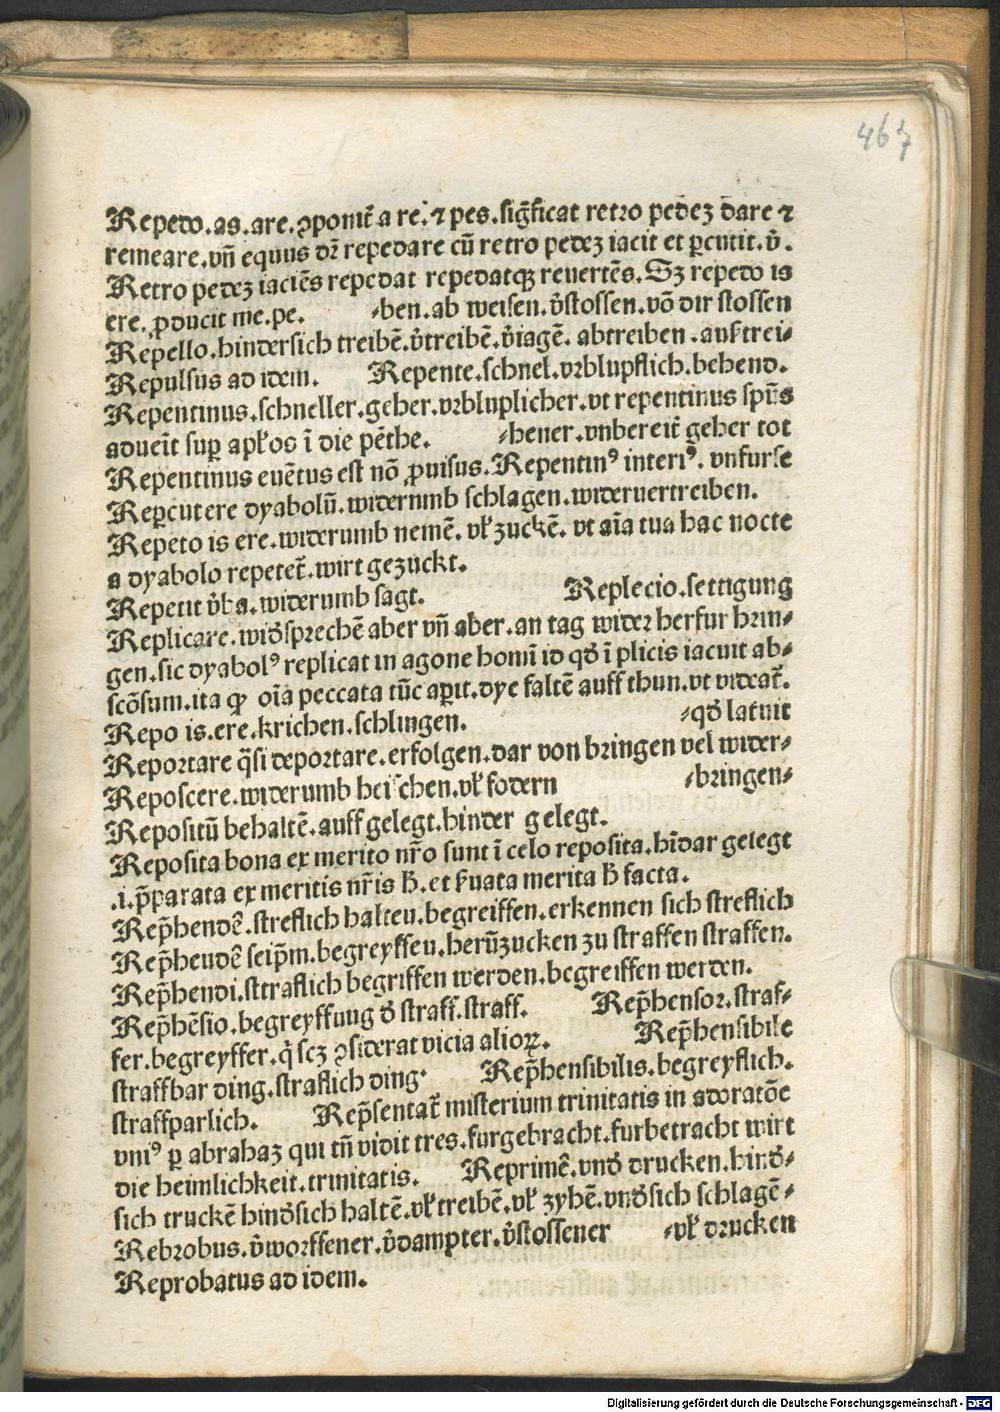 467
Repedo.as.are.ꝯponit᷑ a re.⁊ pes.sig̃ficat retro pedeꝫ dare ⁊
remeare.vñ equus dꝛ̃ repedare cũ retro pedeꝫ iacit et ꝑcutit.v̉.
Retro pedeꝫ iaciẽs repedat repedatqꝫ reuertẽs. Sꝫ repedo is
ere.ꝓducit me.pe. ⸗ben.ab weisen.v̉stossen.võ dir stossen
Repello.hindersich treibẽ.v̉treibẽ.v̉iagẽ. abtreiben .auſztrei⸗
Repulsus ad idem. Repente.schnel.vrblupflich.behend.
Repentinus.schneller.geher.vrbluplicher.vt repentinus spũs
adueĩt suꝑ apl̃os ĩ die pẽthe. ⸗hener.vnbereit̃ geher tot
Repentinus euẽtus est nõ ꝓuisus.Repentinꝰ interiꝰ. vnfurse
Reꝑcutere dyabolũ.widerumb schlagen.wideruertreiben.
Repeto is ere.widerumb nemẽ. vl̃ zuckẽ. vt aĩa tua hac nocte
a dyabolo repetet̃.wirt gezuckt.
Repetit v̉ba.widerumb sagt. Replecio.settigung
Replicare.wid̉sprechẽ aber vñ aber.an tag wider herfur brin⸗
gen.sic dyabolꝰ replicat in agone homĩ id qd̉ ĩ plicis iacuit ab⸗
scõsum.ita ꝙ oĩa peccata tũc aꝑit.dye faltẽ auff thun.vt videat̃.
Repo is.ere.krichen.schlingen. ⸗qd̉ latuit
Reportare q̃si deportare.erfolgen.dar von bringen vel wider⸗
Reposcere.widerumb heischen.vl̃ fodern ⸗bringen⸗
Repositũ behaltẽ.auff gelegt.hinder gelegt.
Reposita bona ex merito nr̃o sunt ĩ celo reposita.hĩdar gelegt
.i.p̃parata ex meritis nr̃is h̃.et ẜuata merita h̃ facta.
Rep̃hendẽ.streflich halteu.begreiffen.erkennen sich streflich
Rep̃heudẽ seip̃m.begreyffeu.herũzucken zu straffen straffen.
Rep̃hendi.sttraflich begriffen werden.begreiffen werden.
Rep̃hẽsio.begreyffung d̉ straff.straff. Rep̃hensor.straf⸗
fer.begreyffer.q̉ scꝫ ꝯsiderat vicia alioꝝ. Rep̃hensibile
straffbar ding.straflich ding. Rep̃hensibilis.begreyflich.
straffparlich. Rep̃sentat̃ misterium trinitatis in adoratõe
vniꝰ ꝑ abrahaꝫ qui tñ vidit tres.furgebracht.furbetracht wirt
die heimlichkeit.trinitatis. Reprimẽ.vnd̉ drucken.hind̉⸗
sich truckẽ hind̉sich haltẽ.vl̃ treibẽ.vl̃ zyhẽ.vnd̉sich schlagẽ⸗
Rebrobus.v̉worffener.v̉dampter.v̉stossener ⸗vl̃ drucken
Reprobatus ad idem.
Digitalisierung gefördert durch die Deutsche Forschungsgemeinschaft - DFG